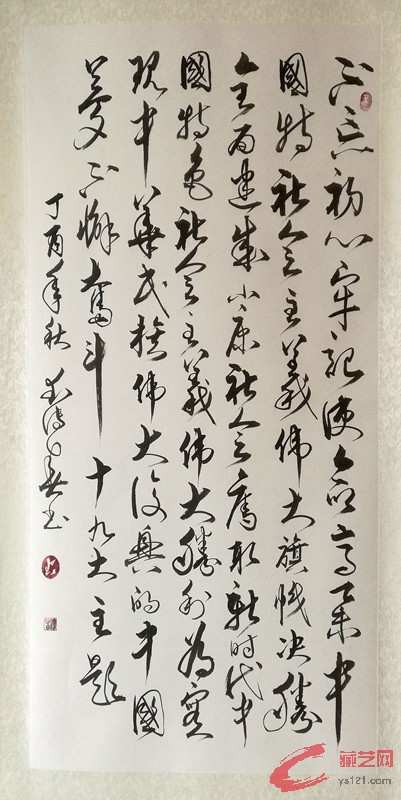 不忘初心牢记使命高举中
國特社会主義伟大旗帜决勝
全面建成小康社会奪取新时代中
國特色社会主義伟大勝利为实
现中華民族伟大復興的中國
梦不懈奮斗 十九大主题
丁酉年秋 书
藏艺网
ys121.com